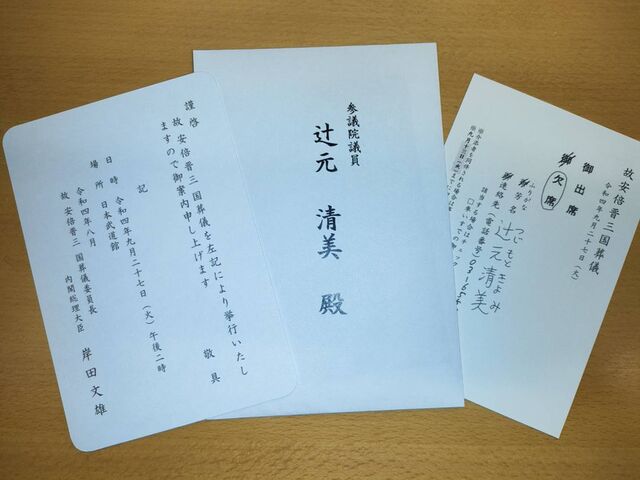 謹啓
故 安倍晋三 国葬儀を左記により挙行いたし
ますので御案内申し上げます
敬具
記
日時 令和四年九月二十七日(火)午後二時
場所 日本武道館
令和四年八月
故 安倍晋三 国葬儀委員長
内閣総理大臣 岸田文雄
参議院議員
辻元 清美 殿
故 安倍晋三 国葬儀
令和四年九月二十七日(火)
御出席
御欠席
ふりがな つじもと きよみ
御芳名 辻元清美
御連絡先(電話番号)03
該当する場合はチ